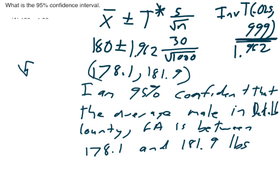 What is the 95% confidence interval.
X̄ ± T* s/√n
InvT(.025, 999)
180 ± 1.962 30/√1000
1.962
(178.1, 181.9)
I am 95% confident that
the average male in
county, GA is between
178.1 and 181.9 lbs